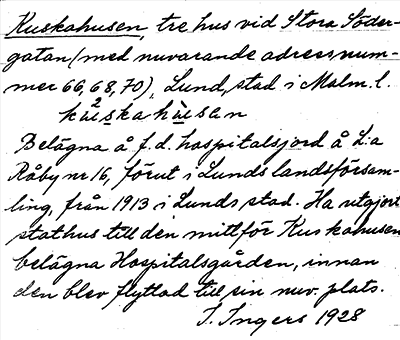 Kuskahusen, tre hus vid Stora Söder-
gatan (med nuvarande adressnum-
mer 66, 68, 70), Lund, stad i Malm. l.
Belägna å f. d. hospitalsjord å L:a
Råby nr 16, förut i Lunds landsförsam-
ling, från 1913 i Lunds stad. Ha utgjort
stathus till den mittför Kuskahusen
belägna Hospitalsgården, innan
den blev flyttad till sin nuv. plats.
I. Ingers 1928